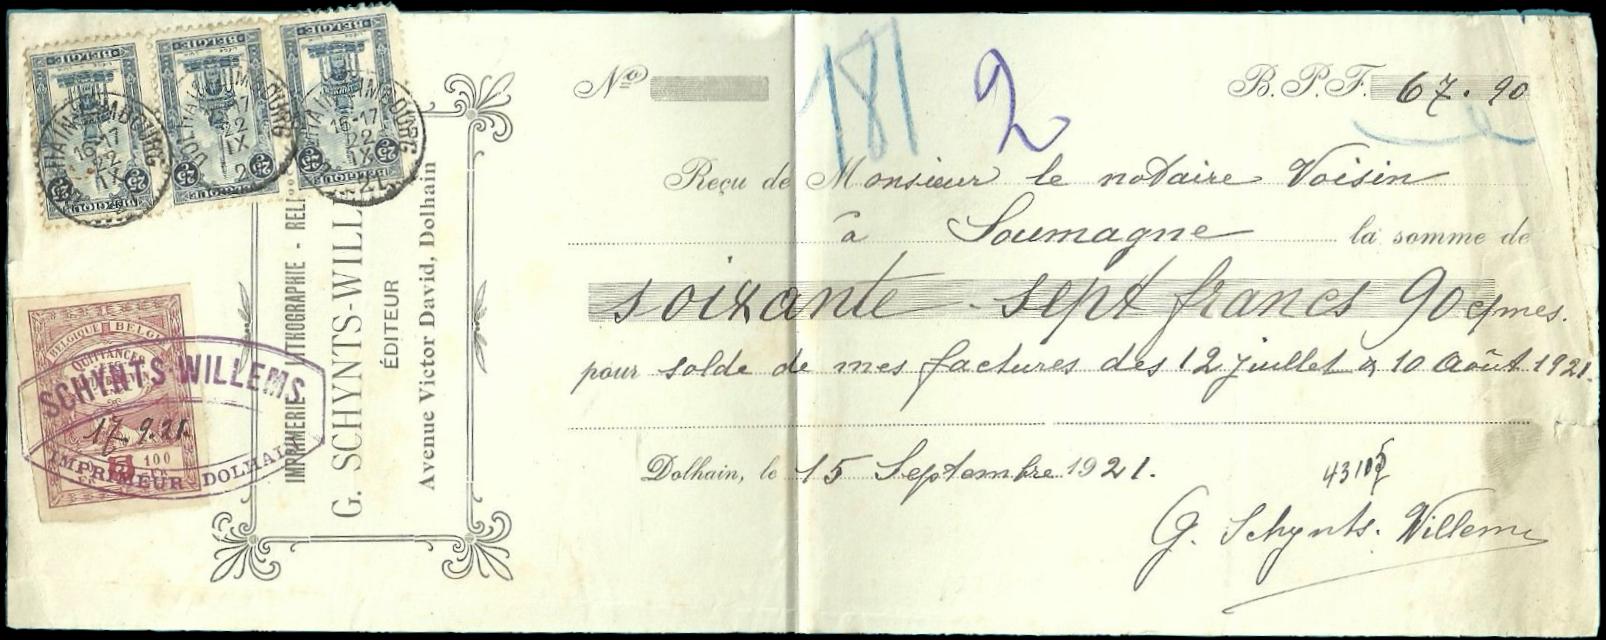 BELGIË BELGIË BELGIË
BELGIQUE BELGIQUE BELGIQUE
25 25 25 25 25 25
DOLHAIN-LIMBOURG
16-17
22
IX
DOLHAIN-LIMBOURG
17
22
IX
DOLHAIN-LIMBOURG
16-17
22
IX
BELGIQUE BELGIË
QUITTANCES
SCHYNTS WILLEMS
17.9.21.
5 100
IMPRIMEUR DOLHAIN
IMPRIMERIE - LITHOGRAPHIE - RELI
G. SCHYNTS-WILL
ÉDITEUR
Avenue Victor David, Dolhain
No 181 2 B. P. F. 67.90
Reçu de Monsieur le notaire Voisin
à Soumagne la somme de
soixante-sept francs 90 ctmes.
pour solde de mes factures des 12 juillet & 10 Août 1921.
Dolhain, le 15 Septembre 1921.
G. Schynts-Willems